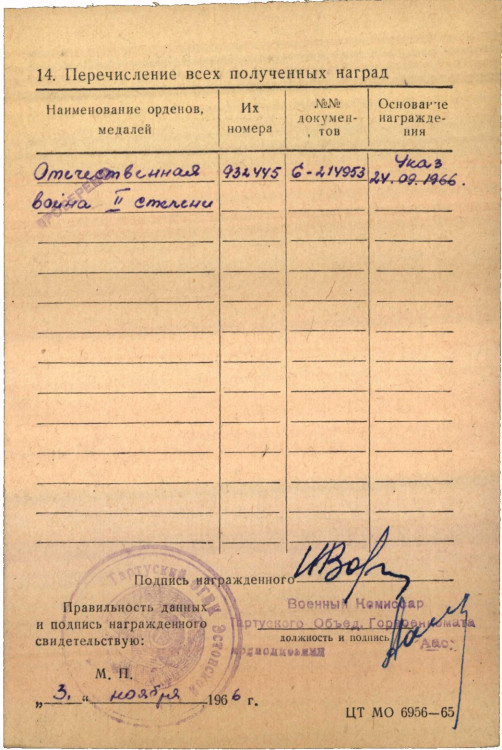 14. Перечисление всех полученных наград
Наименование орденов, медалей
Их номера
№№ докумен-тов
Основание награжде-ния
Отечественная 932445 Б-214953 Указ
война II степени 24.09.1966.
ПРОВЕРЕНО
Подпись награжденного
Тартуский ОГВК Эстонской
Правильность данных
и подпись награжденного
свидетельствую:
Военный Комиссар
Тартуского Объед. Горвоенкомата
должность и подпись
подполковник
М. П.
„3.“ ноября 1966 г.
ЦТ МО 6956—65